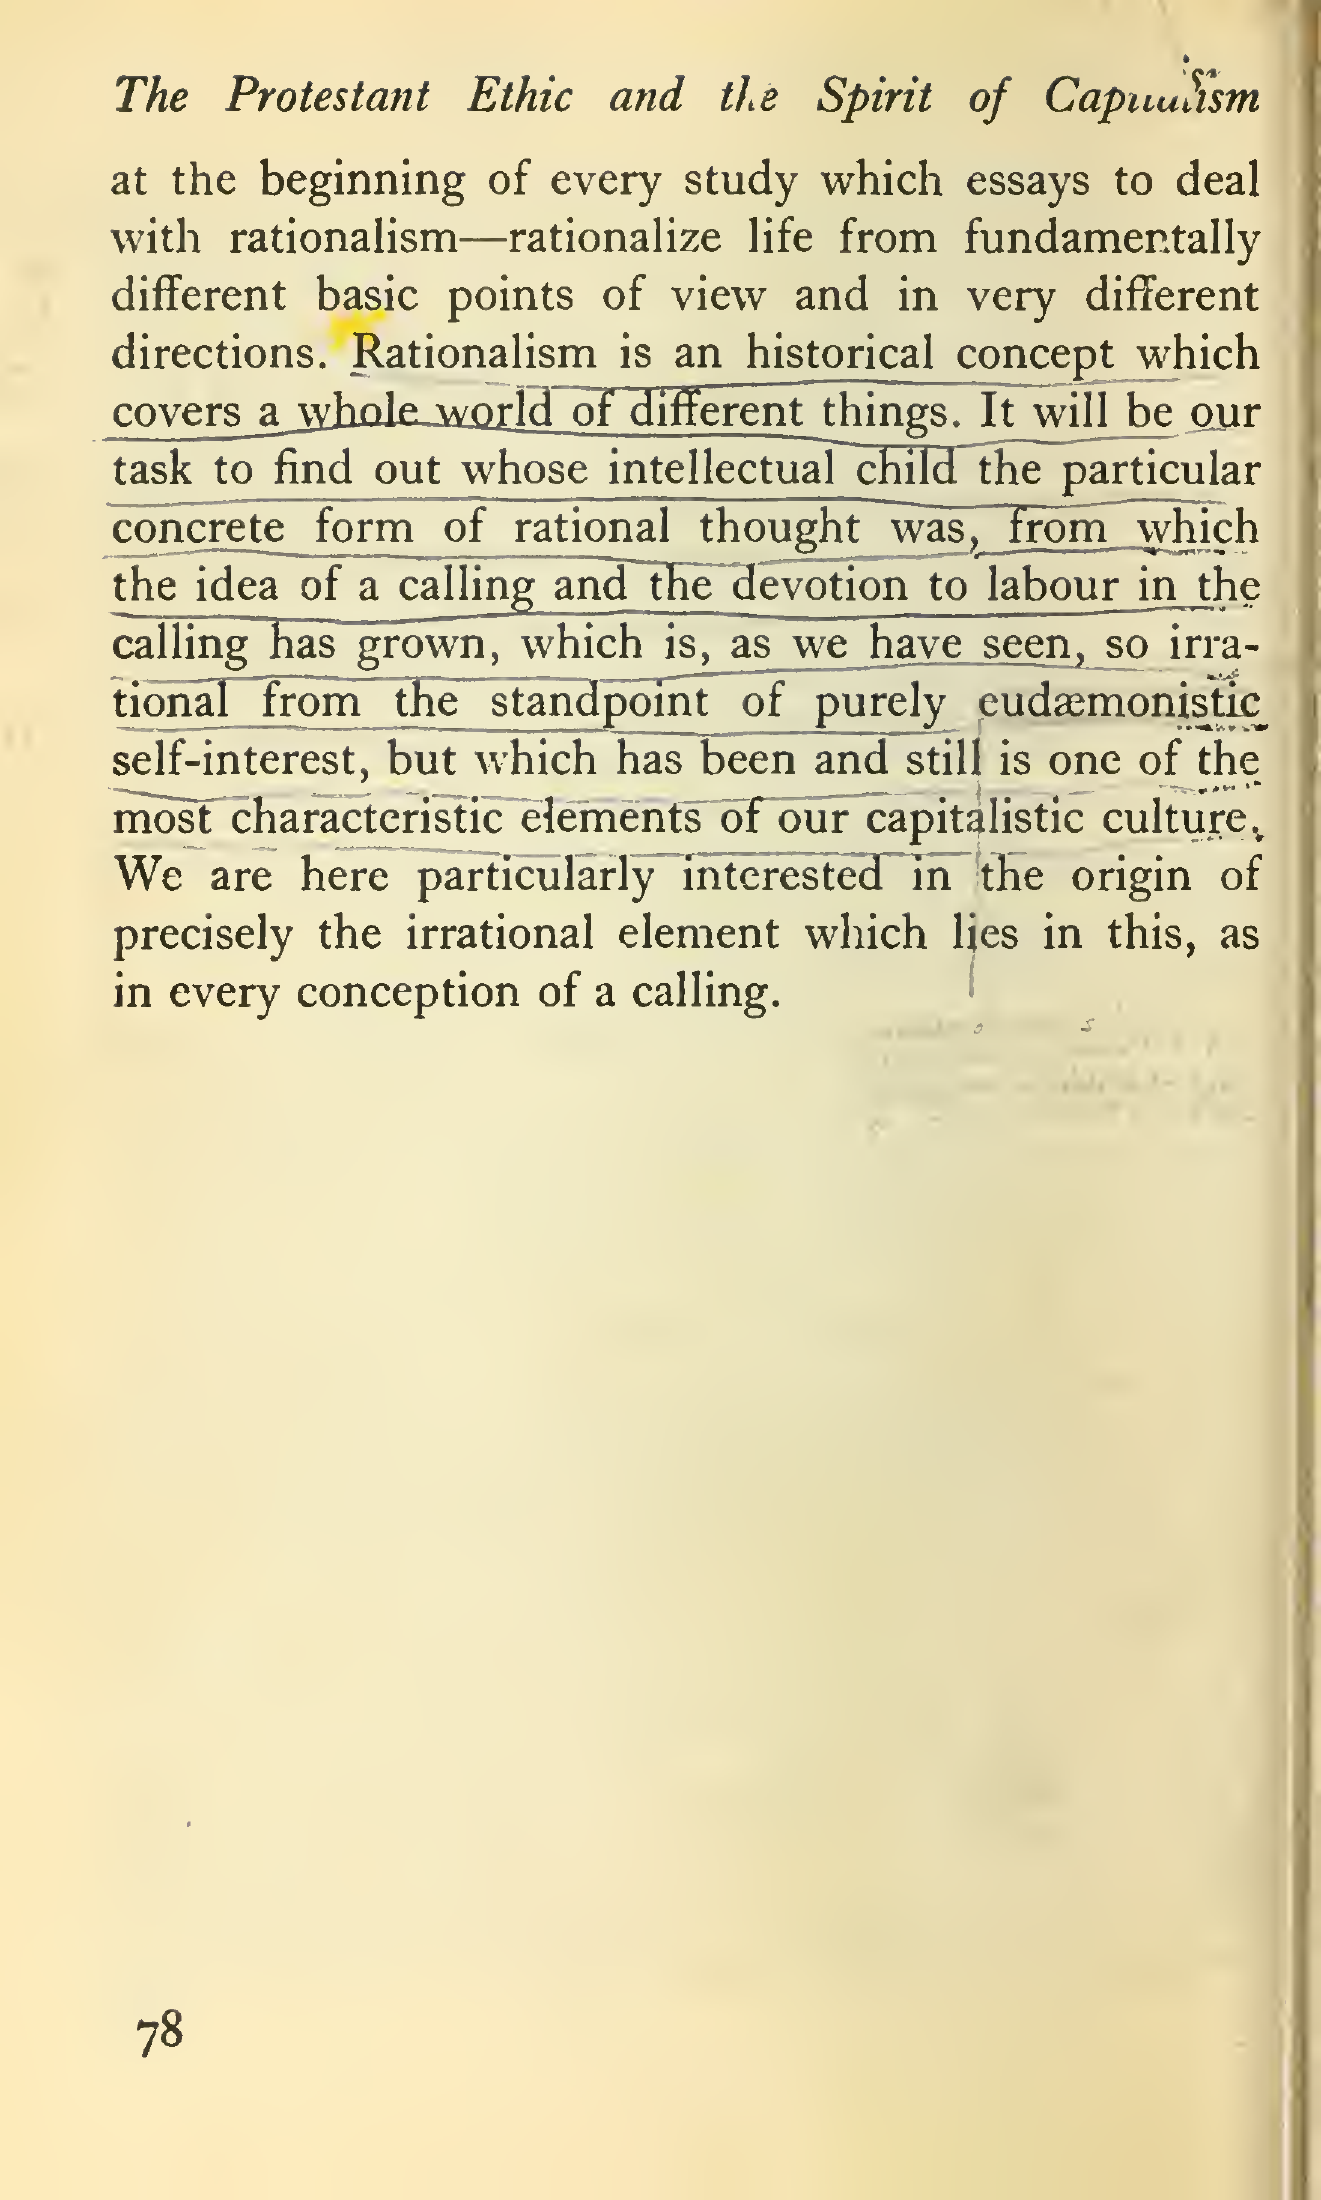 The Protestant Ethic and the Spirit of Capitalism
at the beginning of every study which essays to deal
with rationalism—rationalize life from fundamentally
different basic points of view and in very different
directions. Rationalism is an historical concept which
covers a whole world of different things. It will be our
task to find out whose intellectual child the particular
concrete form of rational thought was, from which
the idea of a calling and the devotion to labour in the
calling has grown, which is, as we have seen, so irra-
tional from the standpoint of purely eudæmonistic
self-interest, but which has been and still is one of the
most characteristic elements of our capitalistic culture.
We are here particularly interested in the origin of
precisely the irrational element which lies in this, as
in every conception of a calling.
78